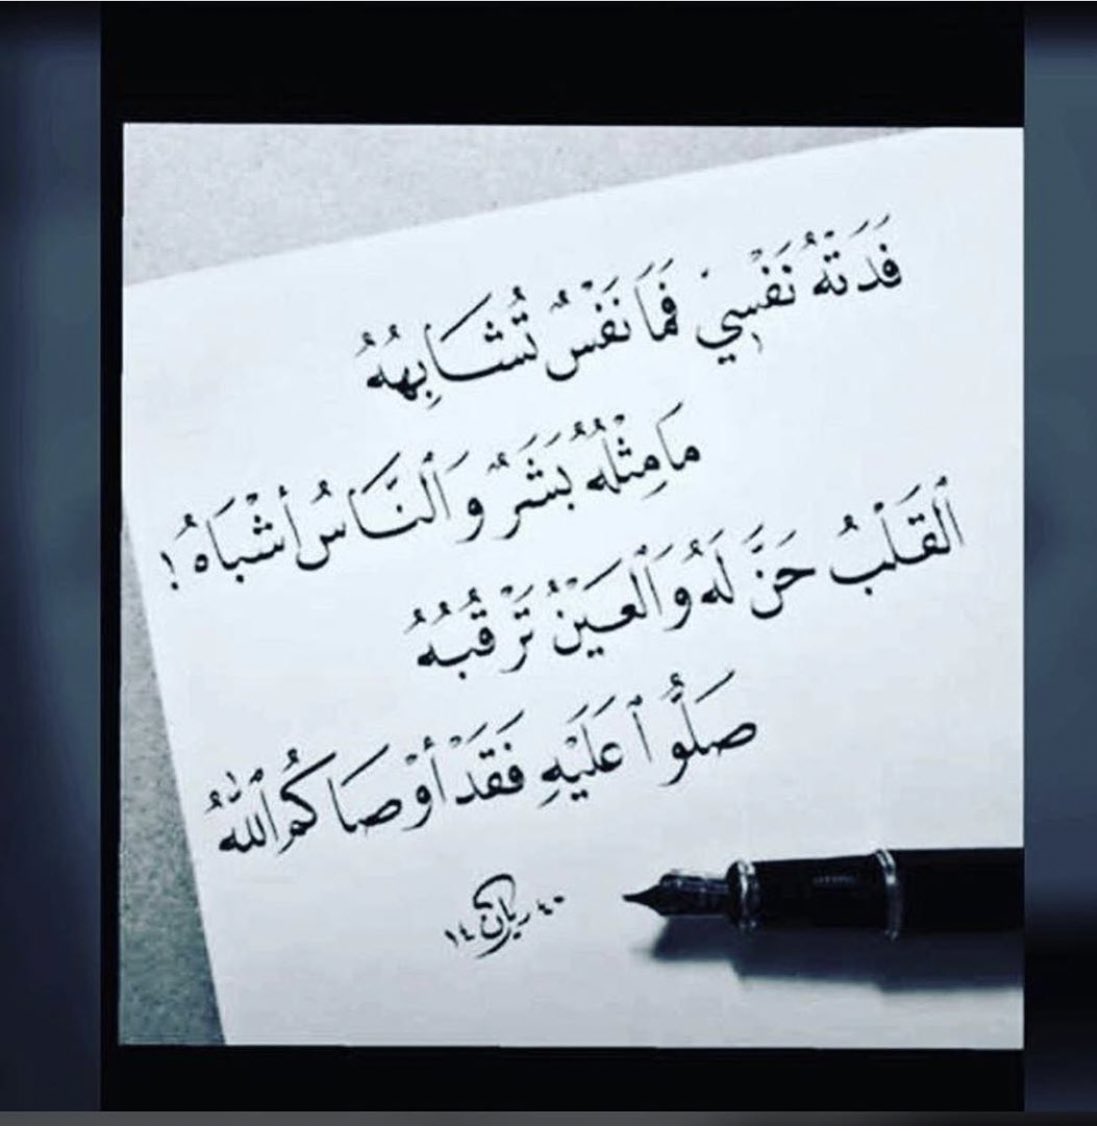 فَدَتْهُ نَفْسِي فَمَا نَفْسٌ تُشَابِهُهُ
مَا مِثْلُهُ بَشَرٌ وَٱلنَّاسُ أَشْبَاهُ !
ٱلْقَلْبُ حَنَّ لَهُ وَٱلْعَيْنُ تَرْقُبُهُ
صَلُّوا عَلَيْهِ فَقَدْ أَوْصَاكُمُ ٱللّٰهُ
١٤ ريان ٤٠